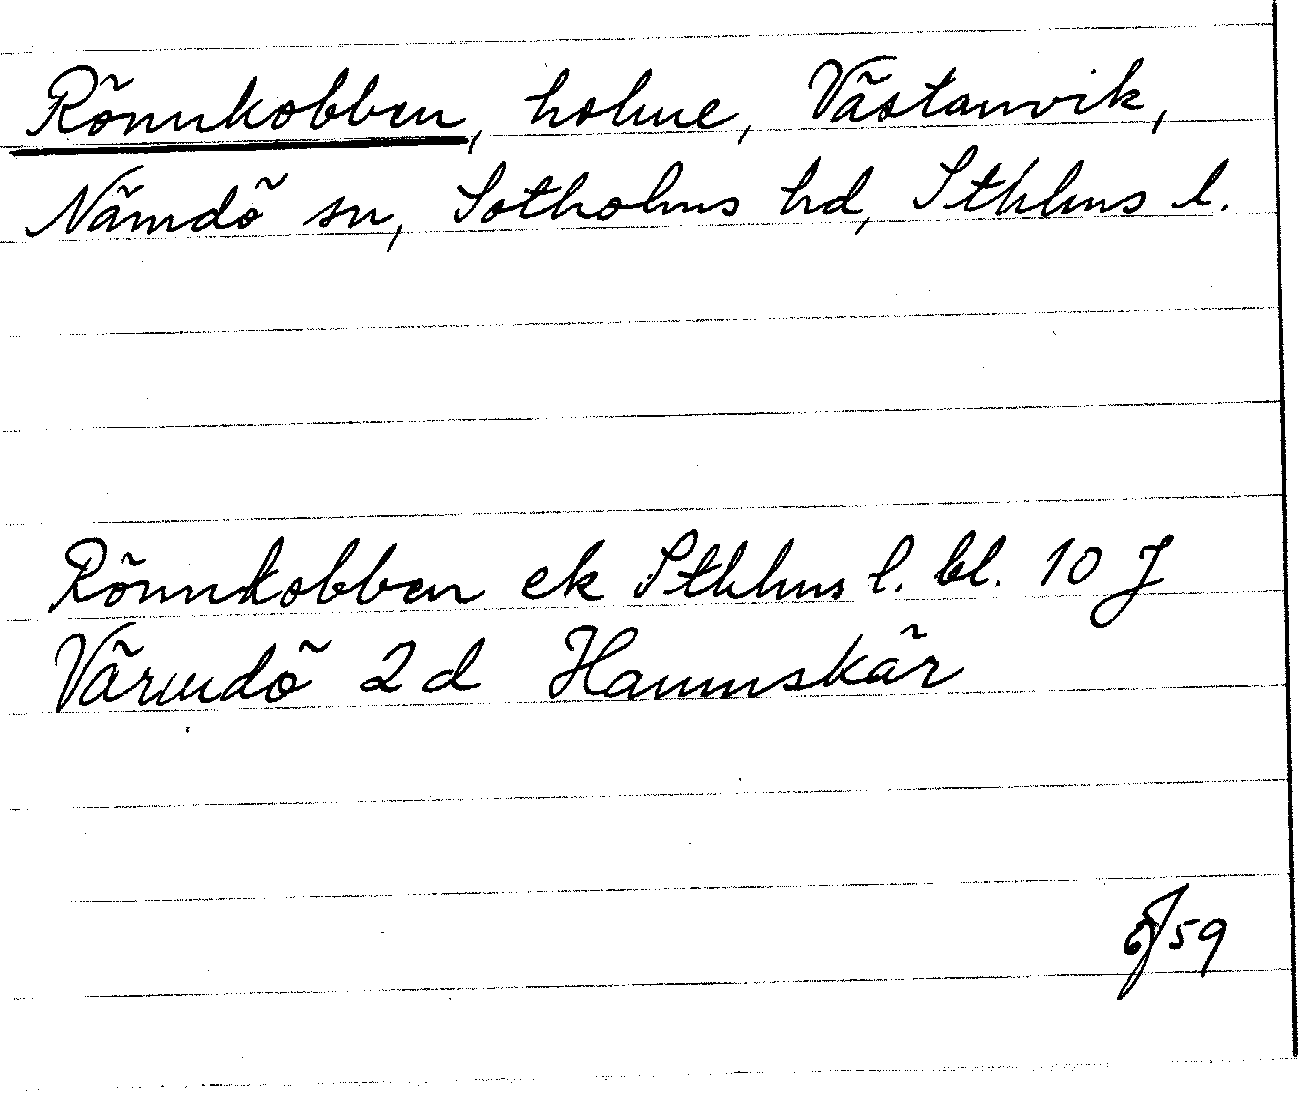 Rönnkobben, holme, Västanvik,
Nämdö sn, Sotholms hd, Sthlms l.
Rönnkobben ek Sthlms l. bl. 10 J
Värmdö 2d Hamnskär
59